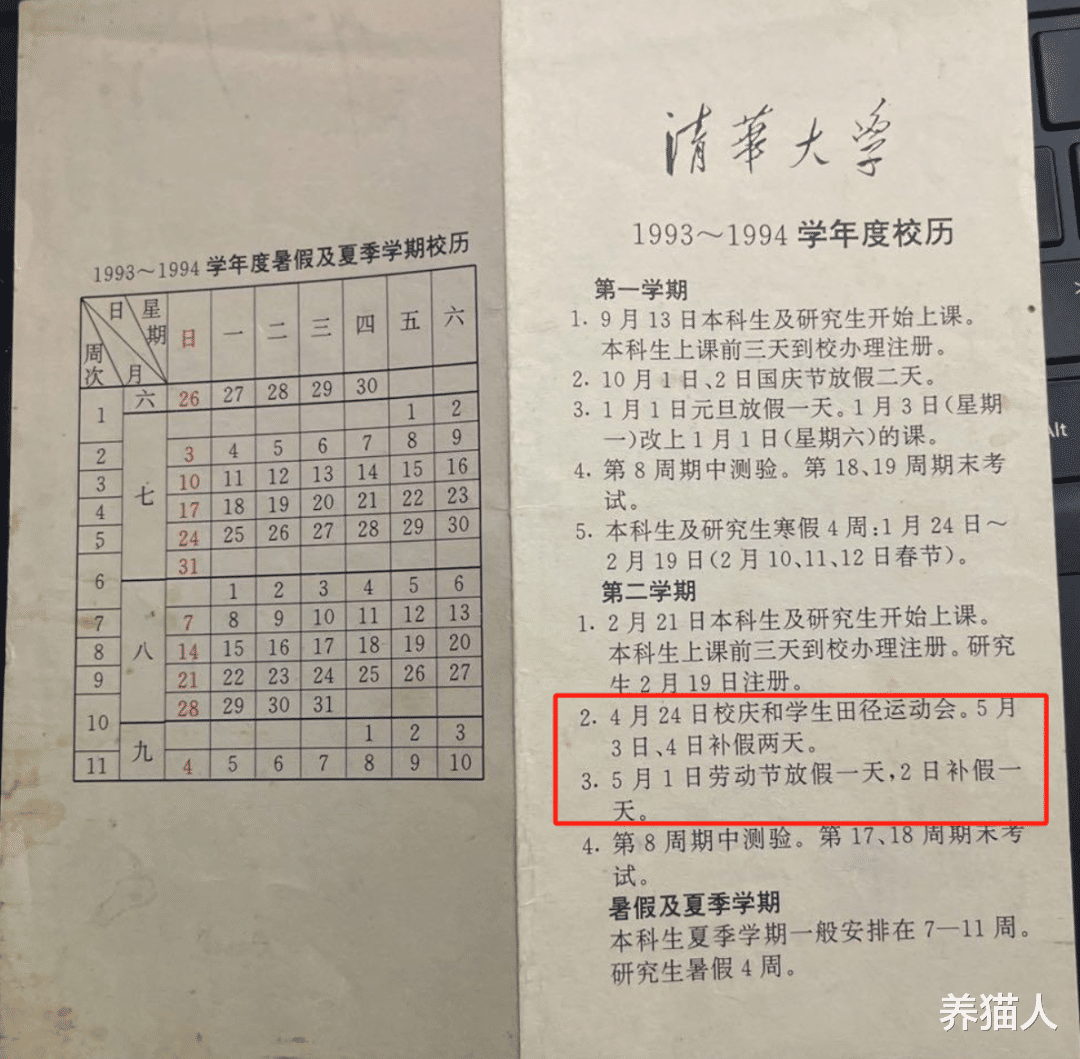 1993～1994 学年度暑假及夏季学期校历
日 星期 周次 月 日 一 二 三 四 五 六
1 六 26 27 28 29 30
七 1 2
2 3 4 5 6 7 8 9
3 10 11 12 13 14 15 16
4 17 18 19 20 21 22 23
5 24 25 26 27 28 29 30
6 31
八 1 2 3 4 5 6
7 7 8 9 10 11 12 13
8 14 15 16 17 18 19 20
9 21 22 23 24 25 26 27
10 28 29 30 31
九 1 2 3
11 4 5 6 7 8 9 10
清華大学
1993～1994 学年度校历
第一学期
1. 9 月 13 日本科生及研究生开始上课。
本科生上课前三天到校办理注册。
2. 10 月 1 日、2 日国庆节放假二天。
3. 1 月 1 日元旦放假一天。1 月 3 日(星期
一)改上 1 月 1 日(星期六)的课。
4. 第 8 周期中测验。第 18、19 周期末考
试。
5. 本科生及研究生寒假 4 周:1 月 24 日～
2 月 19 日(2 月 10、11、12 日春节)。
第二学期
1. 2 月 21 日本科生及研究生开始上课。
本科生上课前三天到校办理注册。研究
生 2 月 19 日注册。
2. 4 月 24 日校庆和学生田径运动会。5 月
3 日、4 日补假两天。
3. 5 月 1 日劳动节放假一天,2 日补假一
天。
4. 第 8 周期中测验。第 17、18 周期末考
试。
暑假及夏季学期
本科生夏季学期一般安排在 7—11 周。
研究生暑假 4 周。
Alt
养猫人